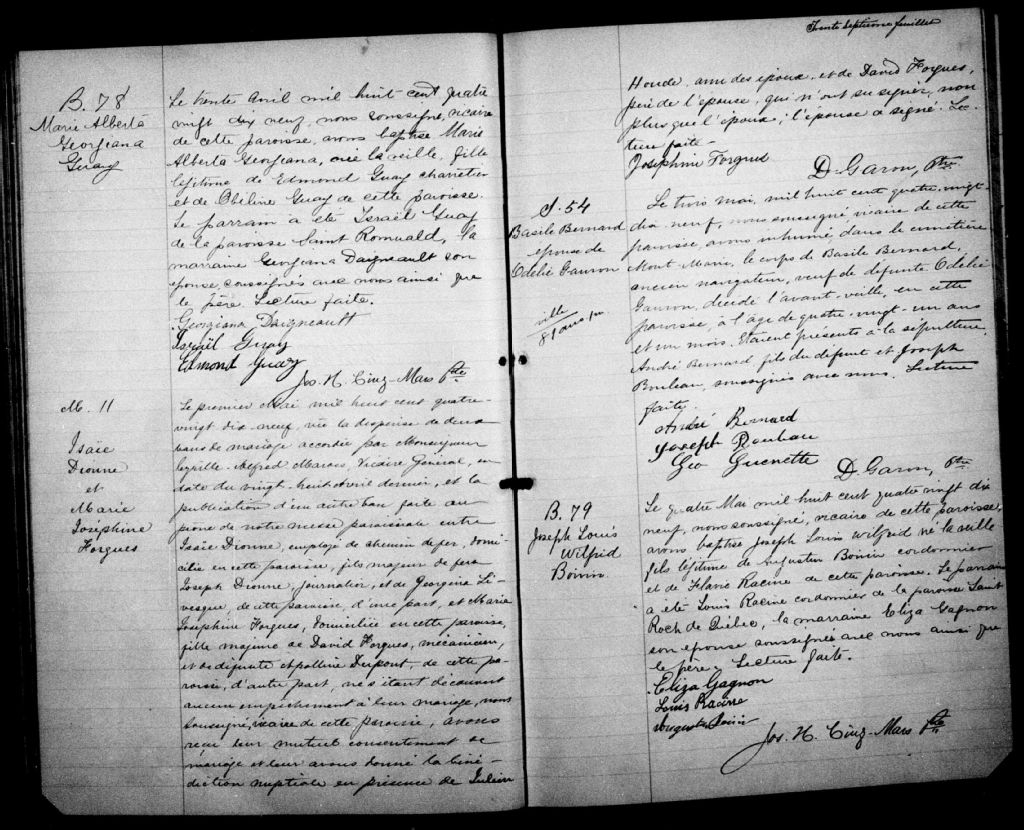 B. 78
Marie-Alberta
Georgiana
Guay
Le trente Avril mil huit cent quatre
vingt dix neuf, nous soussigné, vicaire
de cette paroisse, avons baptisé Marie
Alberta Georgiana, née la veille, fille
légitime de Edmond Guay charretier
et de Obéline Guay de cette paroisse.
Le parrain a été Israël Guay
de la paroisse Saint Romuald, la
marraine Georgiana Daigneault son
épouse soussignés avec nous ainsi que
le père. Lecture faite.
Georgiana Daigneault
Israël Guay
Edmond Guay
Jos. H. Cinq-Mars Ptre
M. 11
Isaïe
Dionne
et
Marie
Joséphine
Forgues
Le premier Mai mil huit cent quatre-
vingt dix-neuf, vu la dispense de deux
bans de mariage accordée par Monseigneur
Cyrille-Alfred Marois, Vicaire Général, en
date du vingt-huit avril dernier, et la
publication d'un autre ban faite au
prône de notre messe paroissiale entre
Isaïe Dionne, employé de chemin de fer, domi-
cilié en cette paroisse, fils majeur de feu
Joseph Dionne, journalier, et de Georgina Lé-
vesque, de cette paroisse, d'une part, et Marie
Joséphine Forgues, domiciliée en cette paroisse,
fille majeure de David Forgues, mécanicien,
et de défunte Apolline Dupont, de cette pa-
roisse, d'autre part, ne s'étant découvert
aucun empêchement à leur mariage, nous
soussigné, vicaire de cette paroisse, avons
reçu leur mutuel consentement de
mariage et leur avons donné la béné-
diction nuptiale en présence de Julien
Trente septième feuillet
Houde, ami des époux, et de David Forgues,
père de l'épouse, qui n'ont su signer, non
plus que l'époux; l'épouse a signé. Lec-
ture faite-
Joséphine Forgues
D. Garon, Ptre
S. 54
Basile Bernard
époux de
Odélie Gauron
ville
81 ans 1 m
Le trois mai, mil huit cent quatre-vingt-
dix-neuf, nous soussigné vicaire de cette
paroisse, avons inhumé, dans le cimetière
Mont-Marie, le corps de Basile Bernard,
ancien navigateur, veuf de défunte Odélie
Gauron, décédé l'avant-veille, en cette
paroisse, à l'âge de quatre-vingt-un ans
et un mois. Étaient présents à la sépulture
André Bernard fils du défunt et Joseph
Bouleau, soussignés avec nous. Lecture
faite.
André Bernard
Joseph
Geo Guenette
D. Garon, Ptre
B. 79
Joseph Louis
Wilfrid
Bonin
Le quatre Mai mil huit cent quatre vingt dix
neuf, nous soussigné, vicaire de cette paroisse,
avons baptisé Joseph Louis Wilfrid né la veille
fils légitime de Augustin Bonin cordonnier
et de Flavie Racine de cette paroisse. Le parrain
a été Louis Racine cordonnier de la paroisse Saint
Roch de Québec, la marraine Eliza Gagnon
son épouse soussignés avec nous ainsi que
le père. Lecture faite.
Eliza Gagnon
Louis Racine
Augustin Bonin
Jos. H. Cinq-Mars Ptre